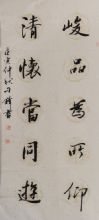 峻品為所仰
清懷當同遊